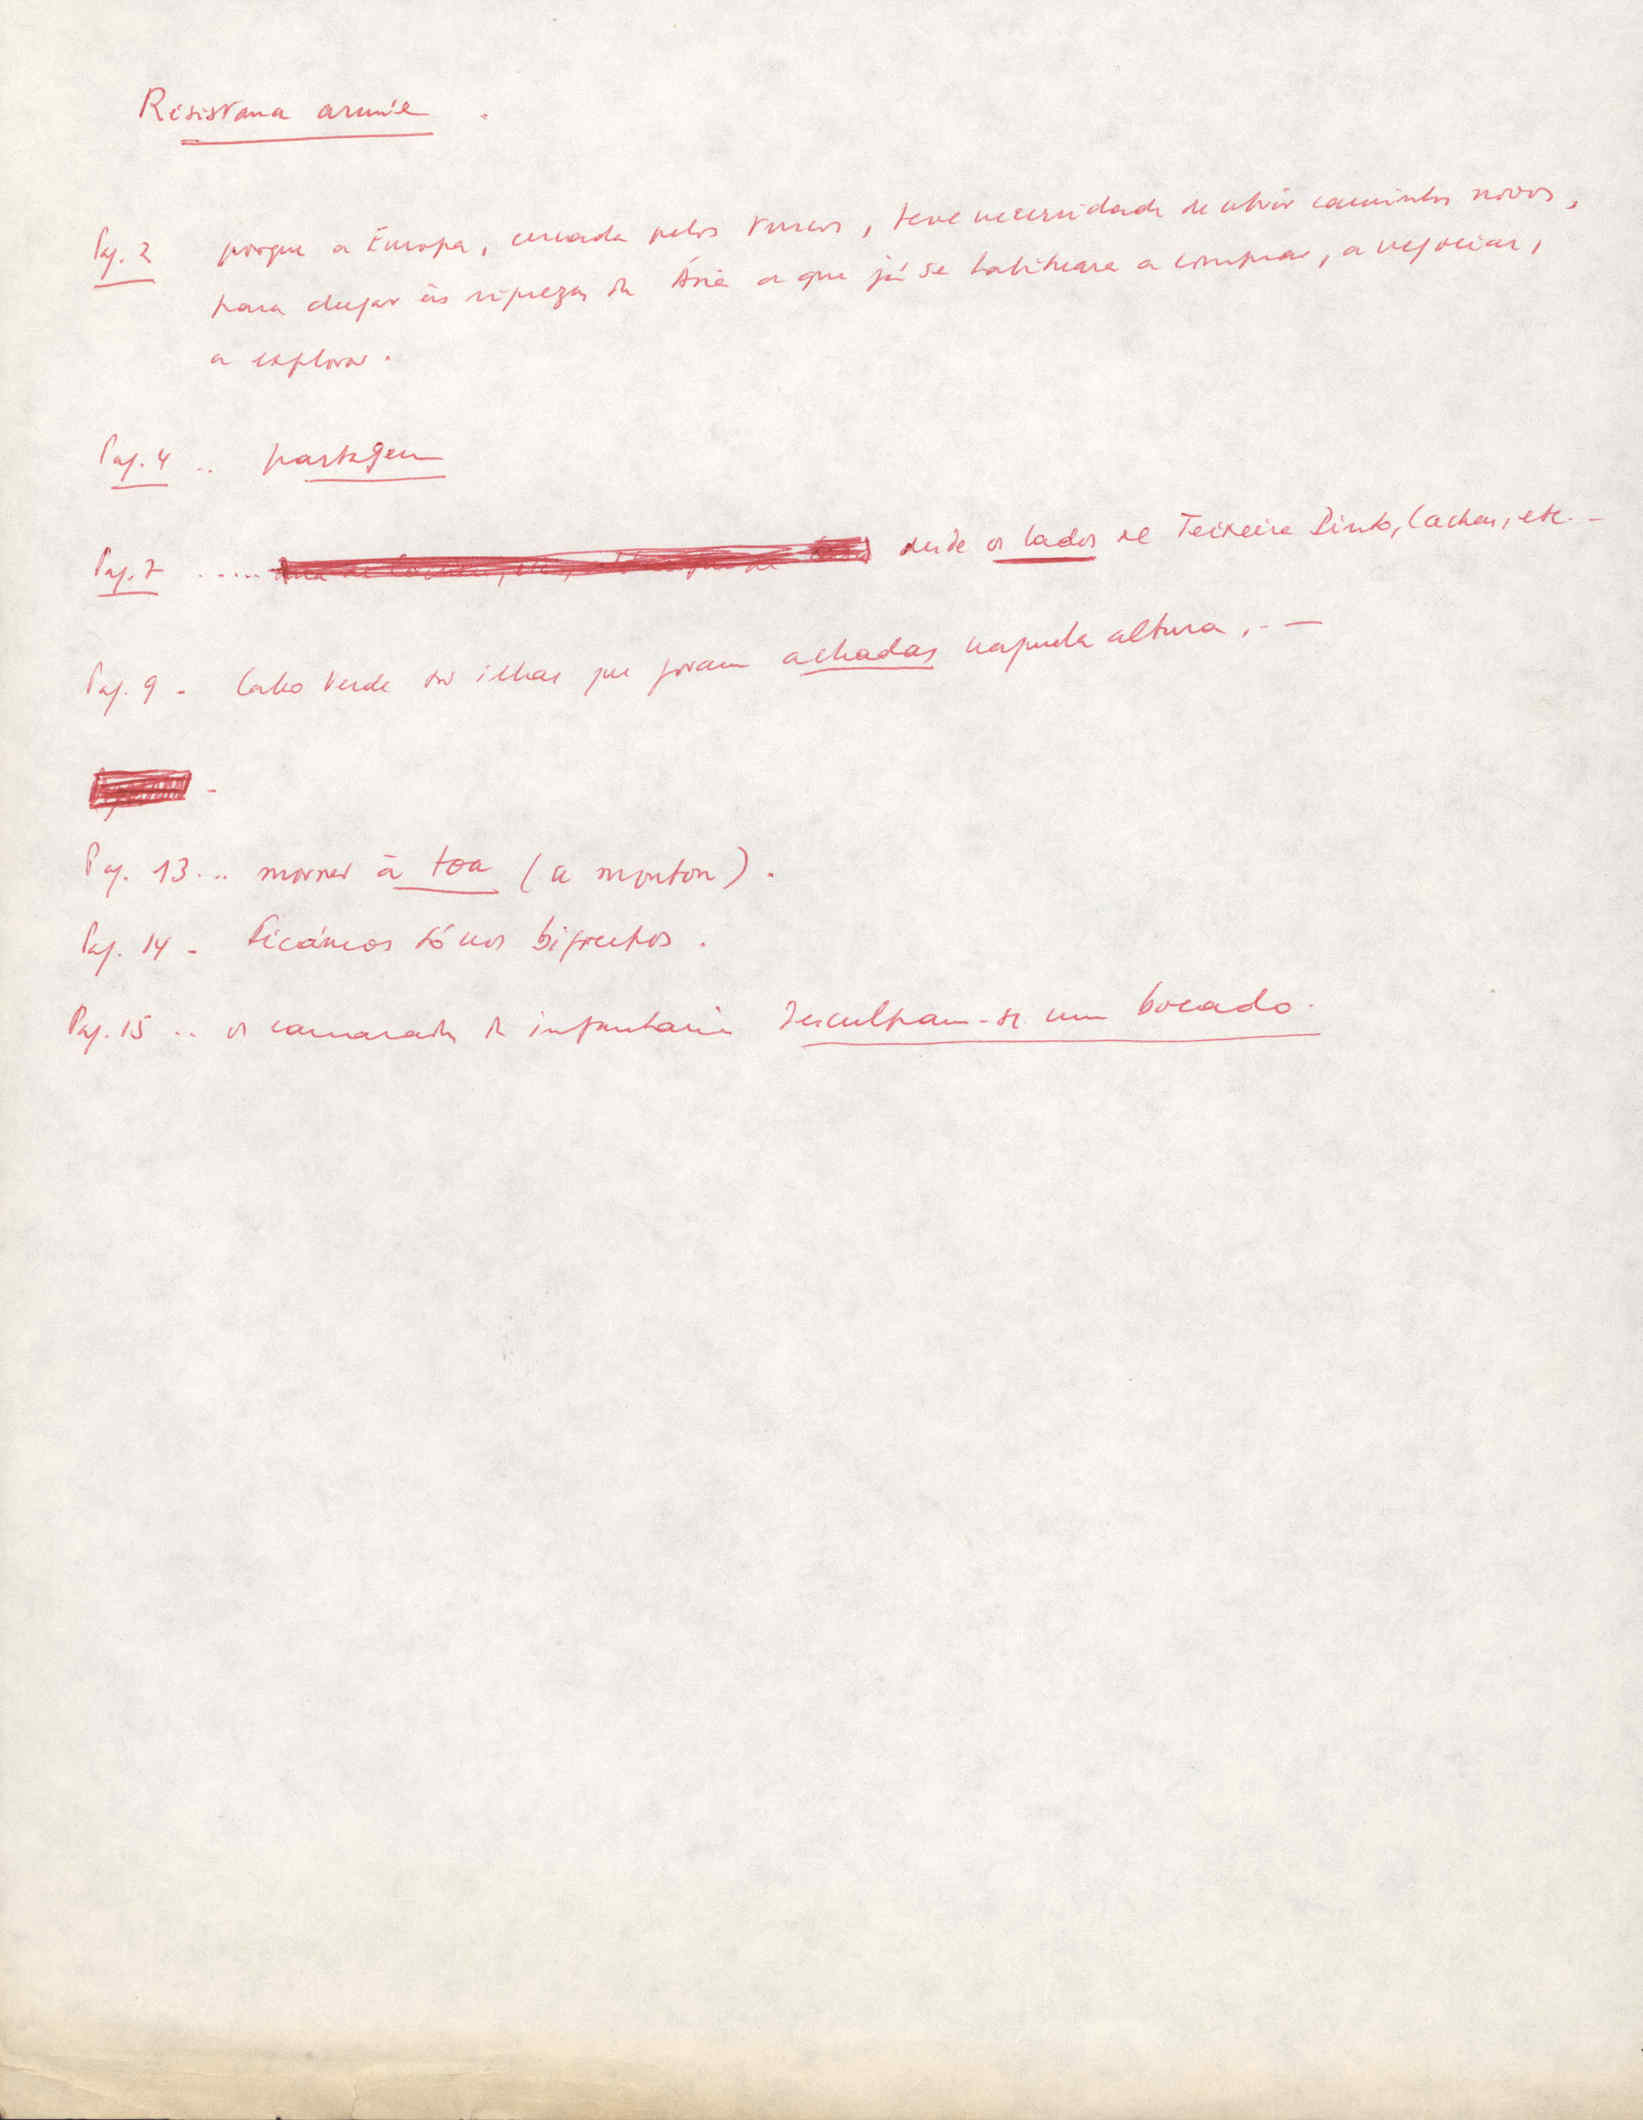 Resistência armée.
Pag. 2 porque a Europa, cercada pelos turcos, teve necessidade de abrir caminhos novos,
para chegar às riquezas da Ásia a que já se habituara a comprar, a negociar,
a explorar.
Pag. 4 .. partagem
Pag. 7 ..... desde os lados de Teixeira Pinto, Cacheu, etc. -
Pag. 9 - Cabo Verde são ilhas que foram achadas naquela altura, . —
Pag. 13 ... morrer à toa (a monton).
Pag. 14 - Ficámos só nos bigrupos.
Pag. 15 .. os camaradas da infantaria desculpam-se um bocado.